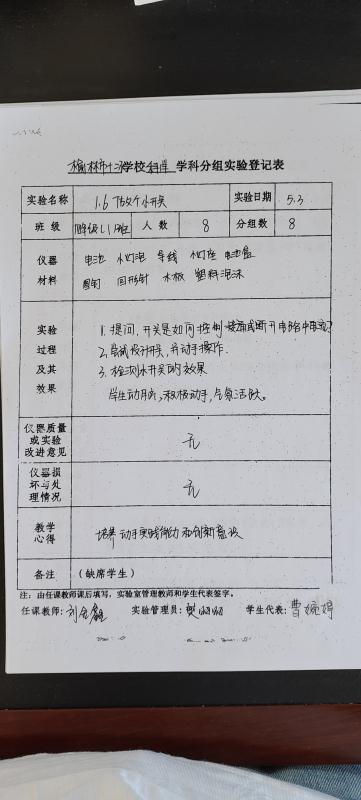 榆林市十二学校科学 学科分组实验登记表
实验名称 1.6 做个小开关 实验日期 5.3
班级 四年级 人数 8 分组数 8
仪器材料 电池 小灯泡 导线 小灯座 电池盒
图钉 回形针 木板 塑料泡沫
实验过程及其效果 1. 提问,开关是如何控制接通或断开电路中电流?
2. 尝试设计开关,并动手操作.
3. 检测小开关的效果
学生动脑,积极动手,气氛活跃。
仪器质量或实验改进意见 无
仪器损坏与处理情况 无
教学心得 培养动手实践能力和创新意识
备注 (缺席学生)
注:由任课教师课后填写,实验室管理教师和学生代表签字。
任课教师: 实验管理员: 学生代表:曹婉婷